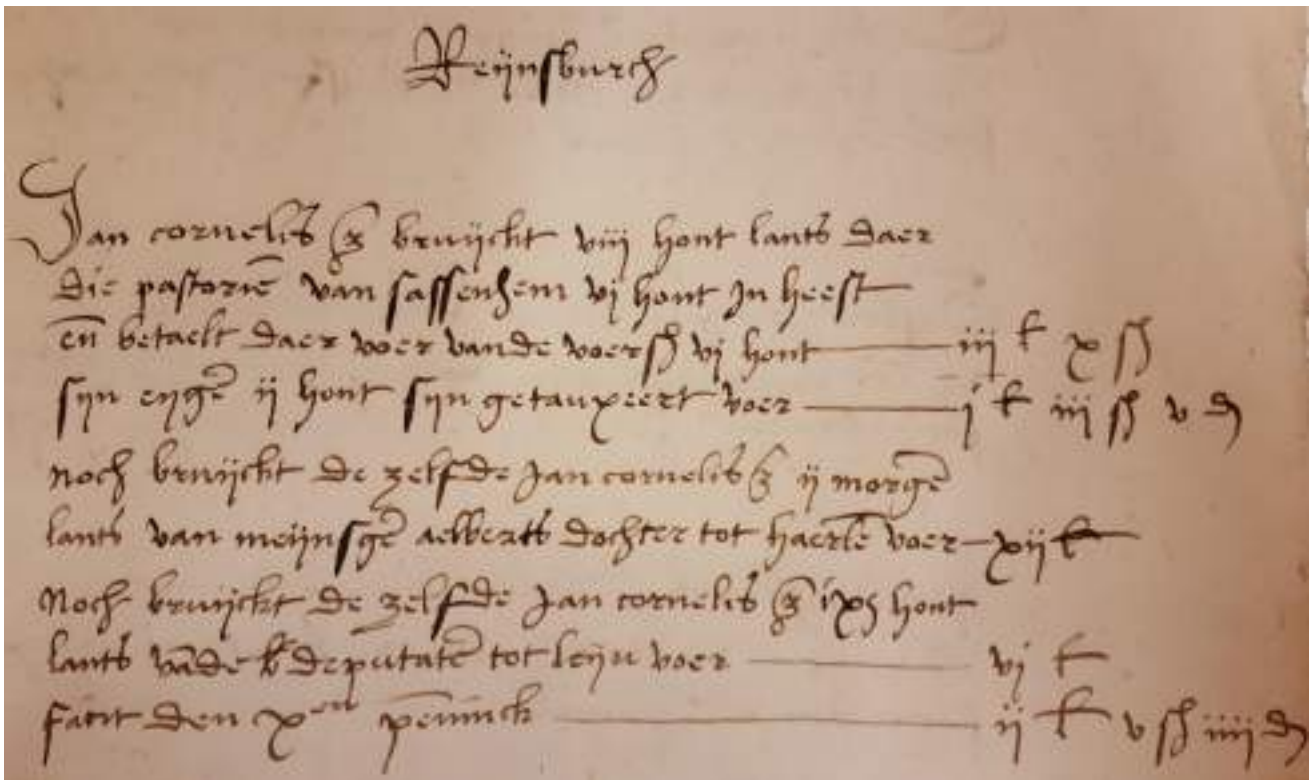 Reijnsburch
Jan cornelis z bruijckt viij hont lants daer
die pastorie van sassenhem vj hont Jn heeft
en betaelt daer voer vande voers vj hont iij £ x sh
sijn eijge ij hont sijn getauxeert voer j £ iij sh v d
Noch bruijckt de zelfde Jan cornelis z ij morge
lants van meijnsge aelberts dochter tot haerle voer xij £
Noch bruijckt de zelfde Jan cornelis z ix hont
lants vade deputate tot leijn voer vj £
facit den x en penninck ij £ v sh iiij d